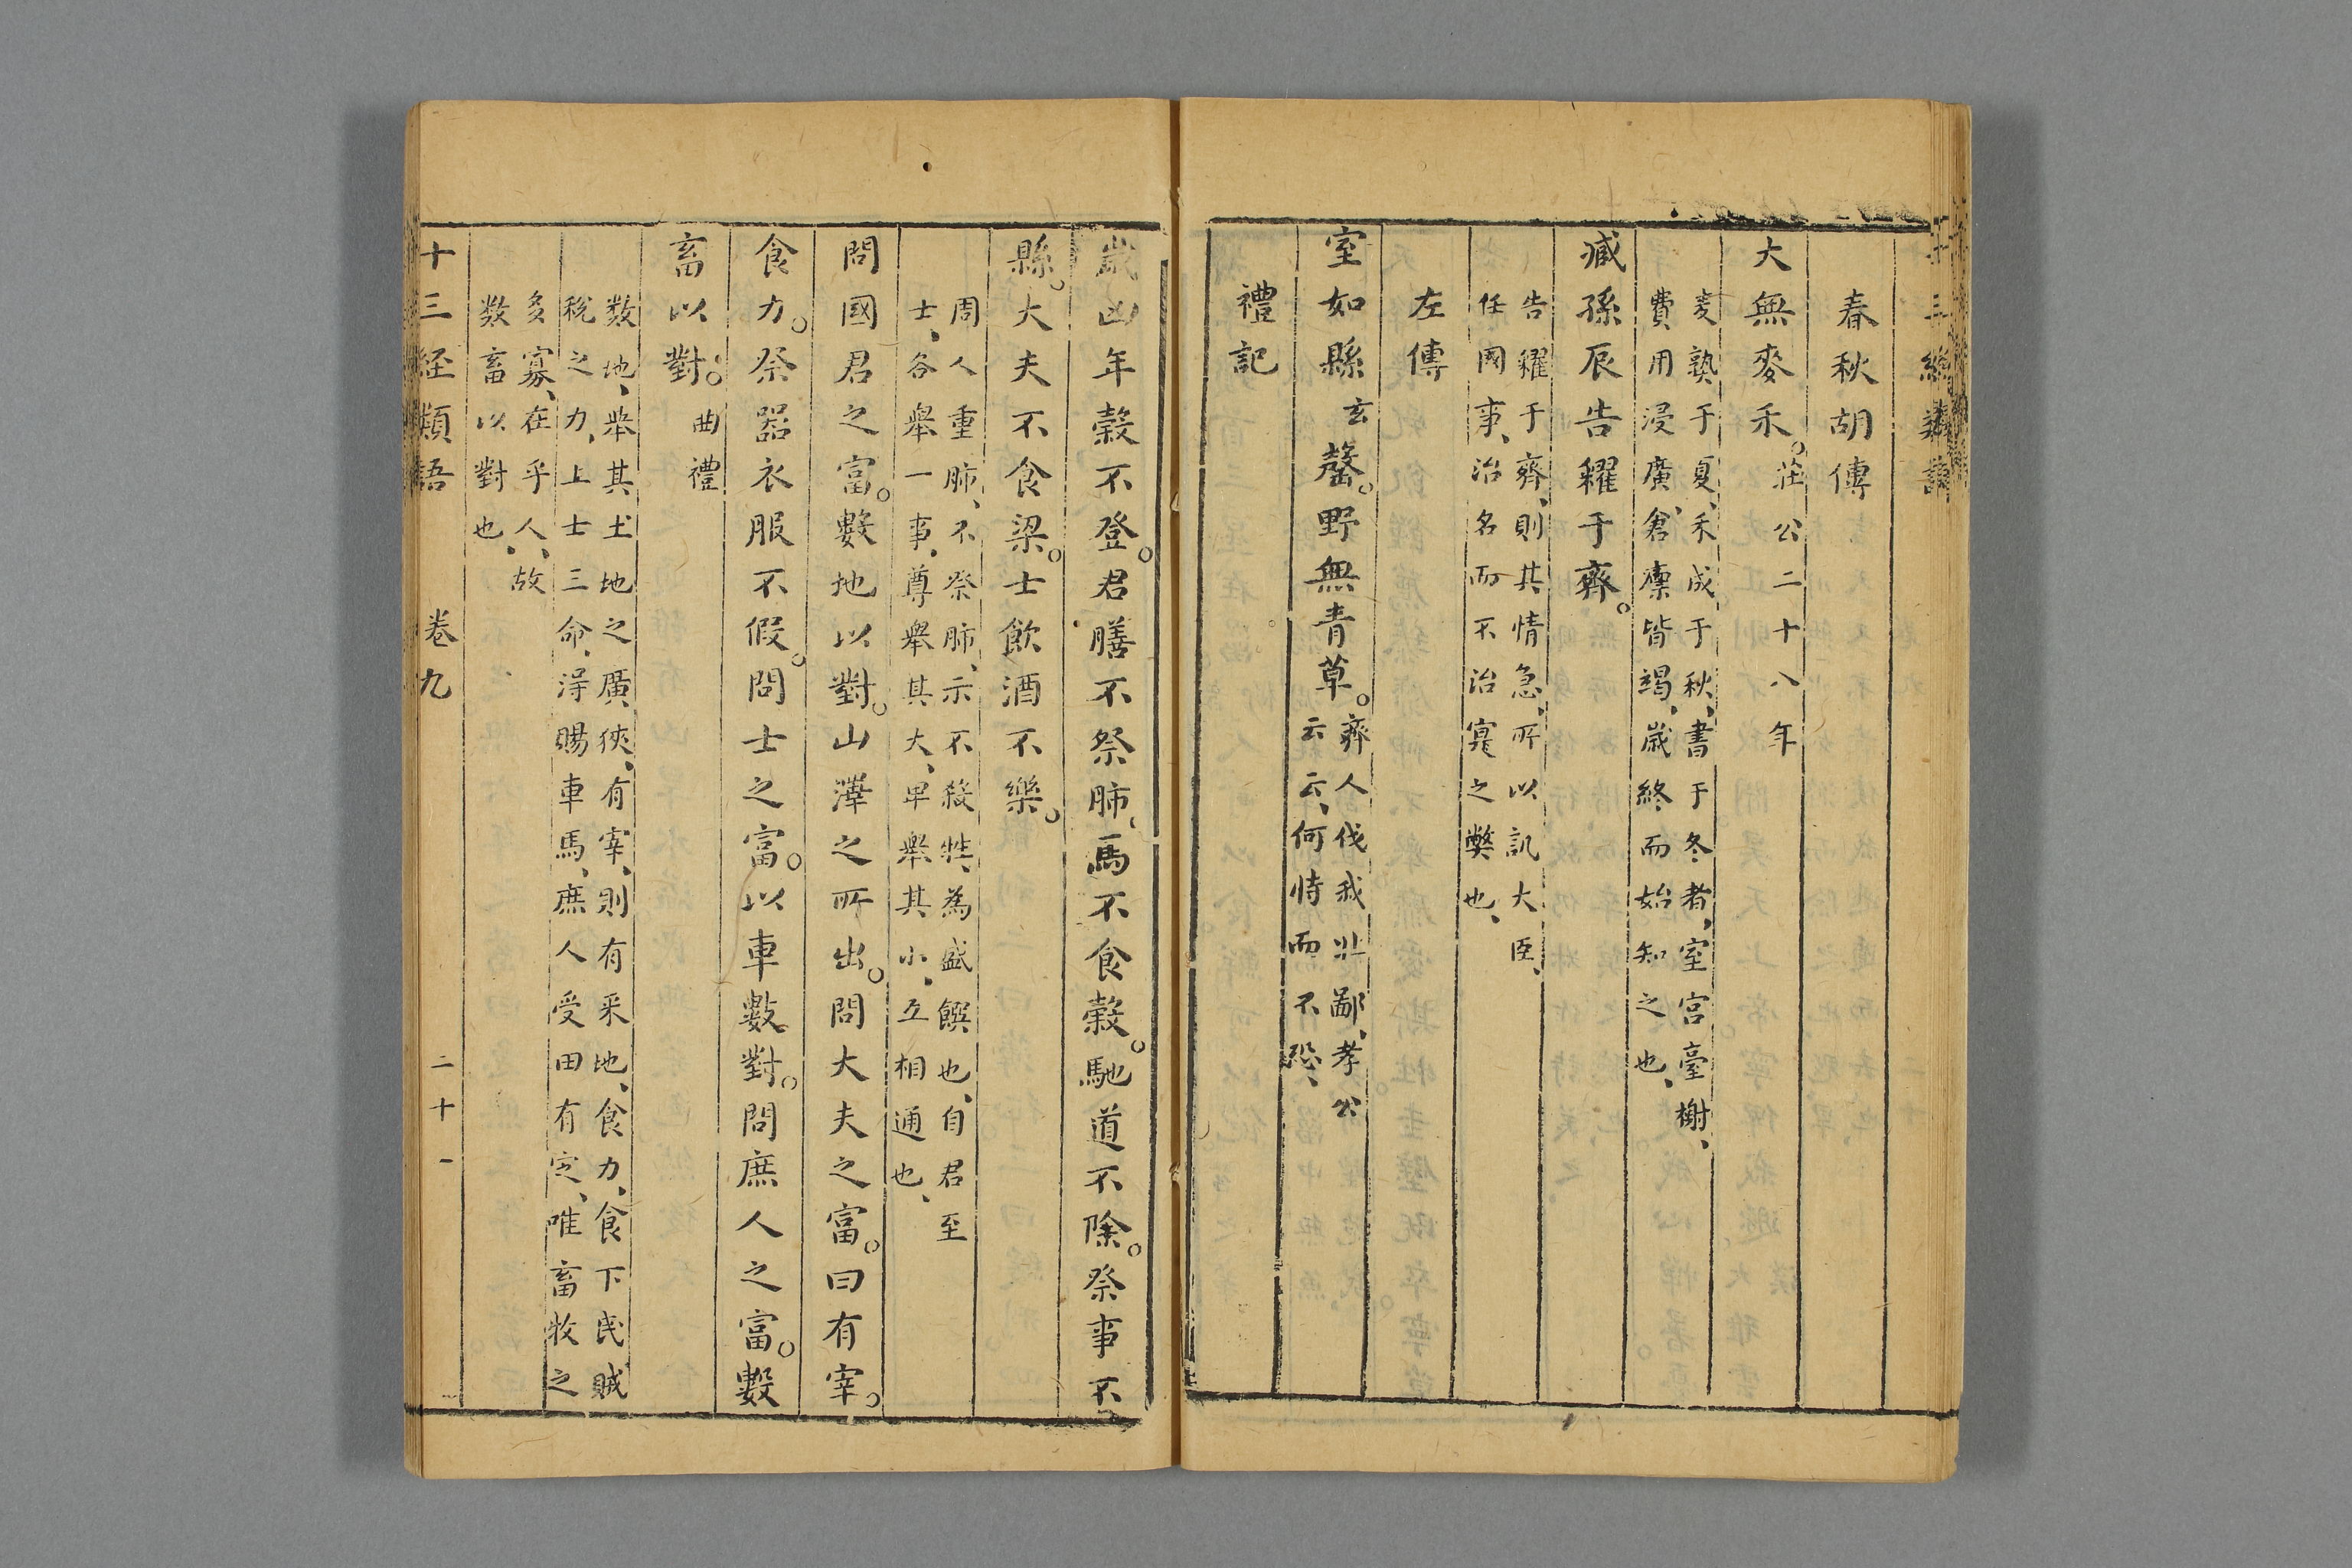 十三經類語
春秋胡傳
大無麥禾。莊公二十八年
麦熟于夏、禾成于秋、書于冬者、室宮臺榭、
費用浸廣、倉廪皆竭、歲終而始知之也、
臧孫辰告糴于齊。
告糴于齊、則其情急、所以訊大臣、
任國事、治名而不治寔之弊也、
左傳
室如縣玄罄。野無青草。齊人伐我北鄙、孝公
云云、何恃而不恐、
禮記
歲凶年穀不登。君膳不祭肺、馬不食穀。馳道不除。祭事不
縣。大夫不食梁。士飲酒不樂。
周人重肺、不祭肺、示不殺牲、為盛饌也、自君至
士、各舉一事、尊舉其大、卑舉其小、互相通也、
問國君之富。數地以對。山澤之所出。問大夫之富。曰有宰。
食力。祭器衣服不假。問士之富。以車數對。問庶人之富。數
畜以對。曲禮
数地、舉其土地之廣狹、有宰、則有采地、食力、食下民賦
稅之力、上士三命、得賜車馬、庶人受田有定、唯畜牧之
多寡、在乎人、故
数畜以對也、
十三経類語 卷九 二十一